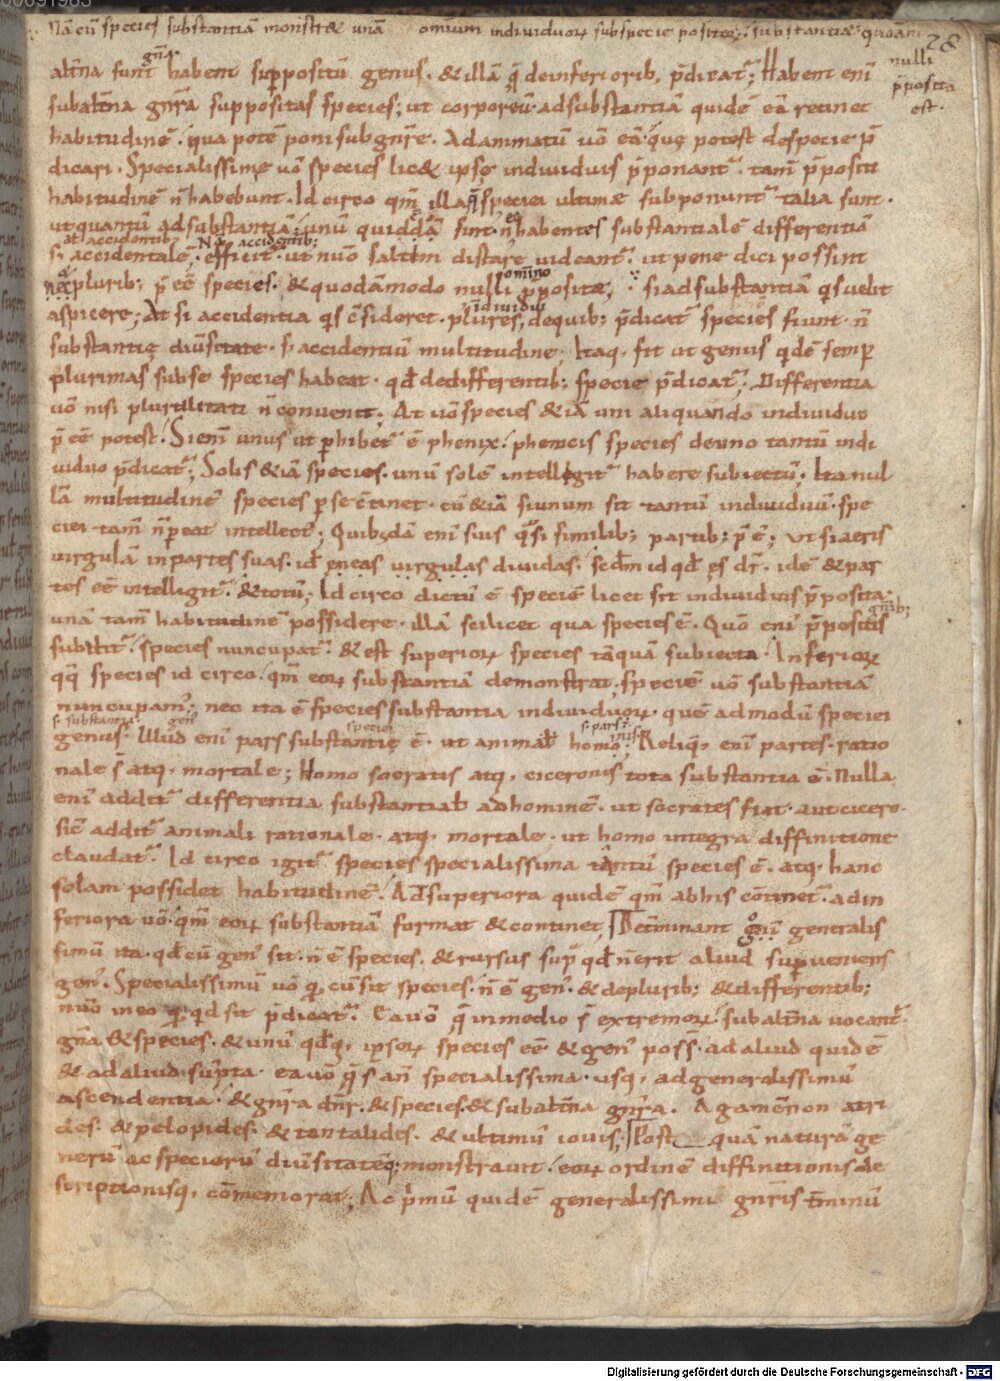 00091983
Nā cū species substantiā monstr& unā omnium individuoꝝ sub specie positoꝝ substantiā& quoāmͣ 28
nulli
p̄posita
est.
gn̄a.
altn̄a sunt habent suppositū genus. & illā q̄ de inferiorib, p̄dicat᷑; Habent enī
subaltn̄a gn̄ra suppositas species; ut corporeū ad substantiā quidē eā retinet
habitudinē. qua potē poni sub gn̄re. Ad animatū uō eā. quę potest de specie p̄
dicari. Specialissimę uō species lic& ipsę individuis p̄ponant᷑. tam̄ p̄positi
habitudinē n̄ habebunt. Id circo qm̄ illa q̄ speciei ultimæ subponunt᷑ talia sunt.
ut quantū ad substantiā; unū quiddā sint. n̄ habentes substantialē differentiā
at accidentib; Nā accidentib;
s; accidentalē. efficit᷑ ut nuō saltim distare videant᷑. ut pene dici possint
omīno
pluribꝫ p̄ eē species. & quodāmodo nulli p̄positæ; si ad substantiā q̄s uelit
individui
aspicere; At si accidentia q̄s c̄sideret. plures, de quibꝫ p̄dicat᷑ species fiunt. n̄
substantię diu̅sitate. s; accidentiū multitudine; Itaq, fit ut genus qdē semp
plurimas sub se species habeat. qđ de differentibꝫ specie p̄dicat᷑. Differentia
uō nisi pluralitati n̄ convenit; At uō species &iā uni aliquando individuo
p̄ eē potest. Si enī unus ut phibet᷑ ē phenix. phenicis species de uno tantū indi
viduo p̄dicat᷑; Solis &iā species. unū solē intellegit᷑ habere subiectū. Ita nul
lā multitudinē species p se c̄tinet. cū &iā si unum sit tantū individuū. spe
ciei tam̄ n̄ peat intellect᷒; Quibꝫdā enī suis q̄si similibꝫ partibꝫ p̄ ē; ut si aeris
virgulā in partes suas. id ē eneas virgulas dividas. scđm id qđ ęs dr̄. idē & par
tes eē intelligit᷑. & totū; Id circo dictū ē speciē licet sit individuis p̄posita.
gn̄ibꝫ
unā tam̄ habitudinē possidere. illā scilicet qua species ē. Quō enī p̄positis
subdit᷑. species nuncupat᷑. & est superioꝝ species tāquā subiecta. Inferioꝝ
q̄q̄ species id circo. qm̄ eoꝝ substantiā demonstrat. speciē uō substantiā
nuncupam᷒; nec ita ē species substantia individuoꝝ. quē admodū speciei
s. substantia gen᷒ speciei s. pars ē. nisi
genus. Illud enī pars substantię ē. ut animal homo; Reliq̄, enī partes. ratio
nale s̄ atq, mortale; Homo socratis atq, ciceronis tota substantia ē. Nulla
enī addit᷑ differentia substantialis ad hominē. ut socrates fiat. aut cicero.
sic addit᷑ animali rationale. atq, mortale. ut homo integra diffinitione
claudat᷑. Id circo igit᷑ species specialissima tantū species ē. atq, hanc
solam possidet habitudinē. Ad superiora quidē qm̄ ab his c̄tinet᷑. ad in
feriora uō. qm̄ eoꝝ substantiā format & continet, Detminant gn̄i generalis
simū ita. qđ cū gen᷒ sit. n̄ ē species. & rursus sup̄ qđ n̄ erit aliud superveniens
gen᷒. Specialissimū uō q̄, cū sit species. n̄ ē gen᷒. & de pluribꝫ & differentibꝫ
nuō in eo q̄ qd sit p̄dicat᷑. Ea uō q̄ in medio s̄ extremoꝝ. subaltn̄a vocant᷑.
gn̄a & species. & unū qđq, ipsoꝝ species eē & gen᷒ poss̄. ad aliud quidē
& ad aliud sūpta. ea uō q̄ s̄ an̄ specialissima. usq, ad generalissimū
ascendentia. & gn̄ra dn̄r. & species. & subaltn̄a gn̄ra. Agamēnon atri
des. & pelopides. & tantalides. & ultimū iovis; Post quā naturā ge
nerū ac specierū diu̅sitatēq; monstravit. eoꝝ ordinē diffinitionis de
scriptionisq, cōmemorat; Ac p̄mū quidē generalissimi gn̄ris t̄minū
Digitalisierung gefördert durch die Deutsche Forschungsgemeinschaft - DFG